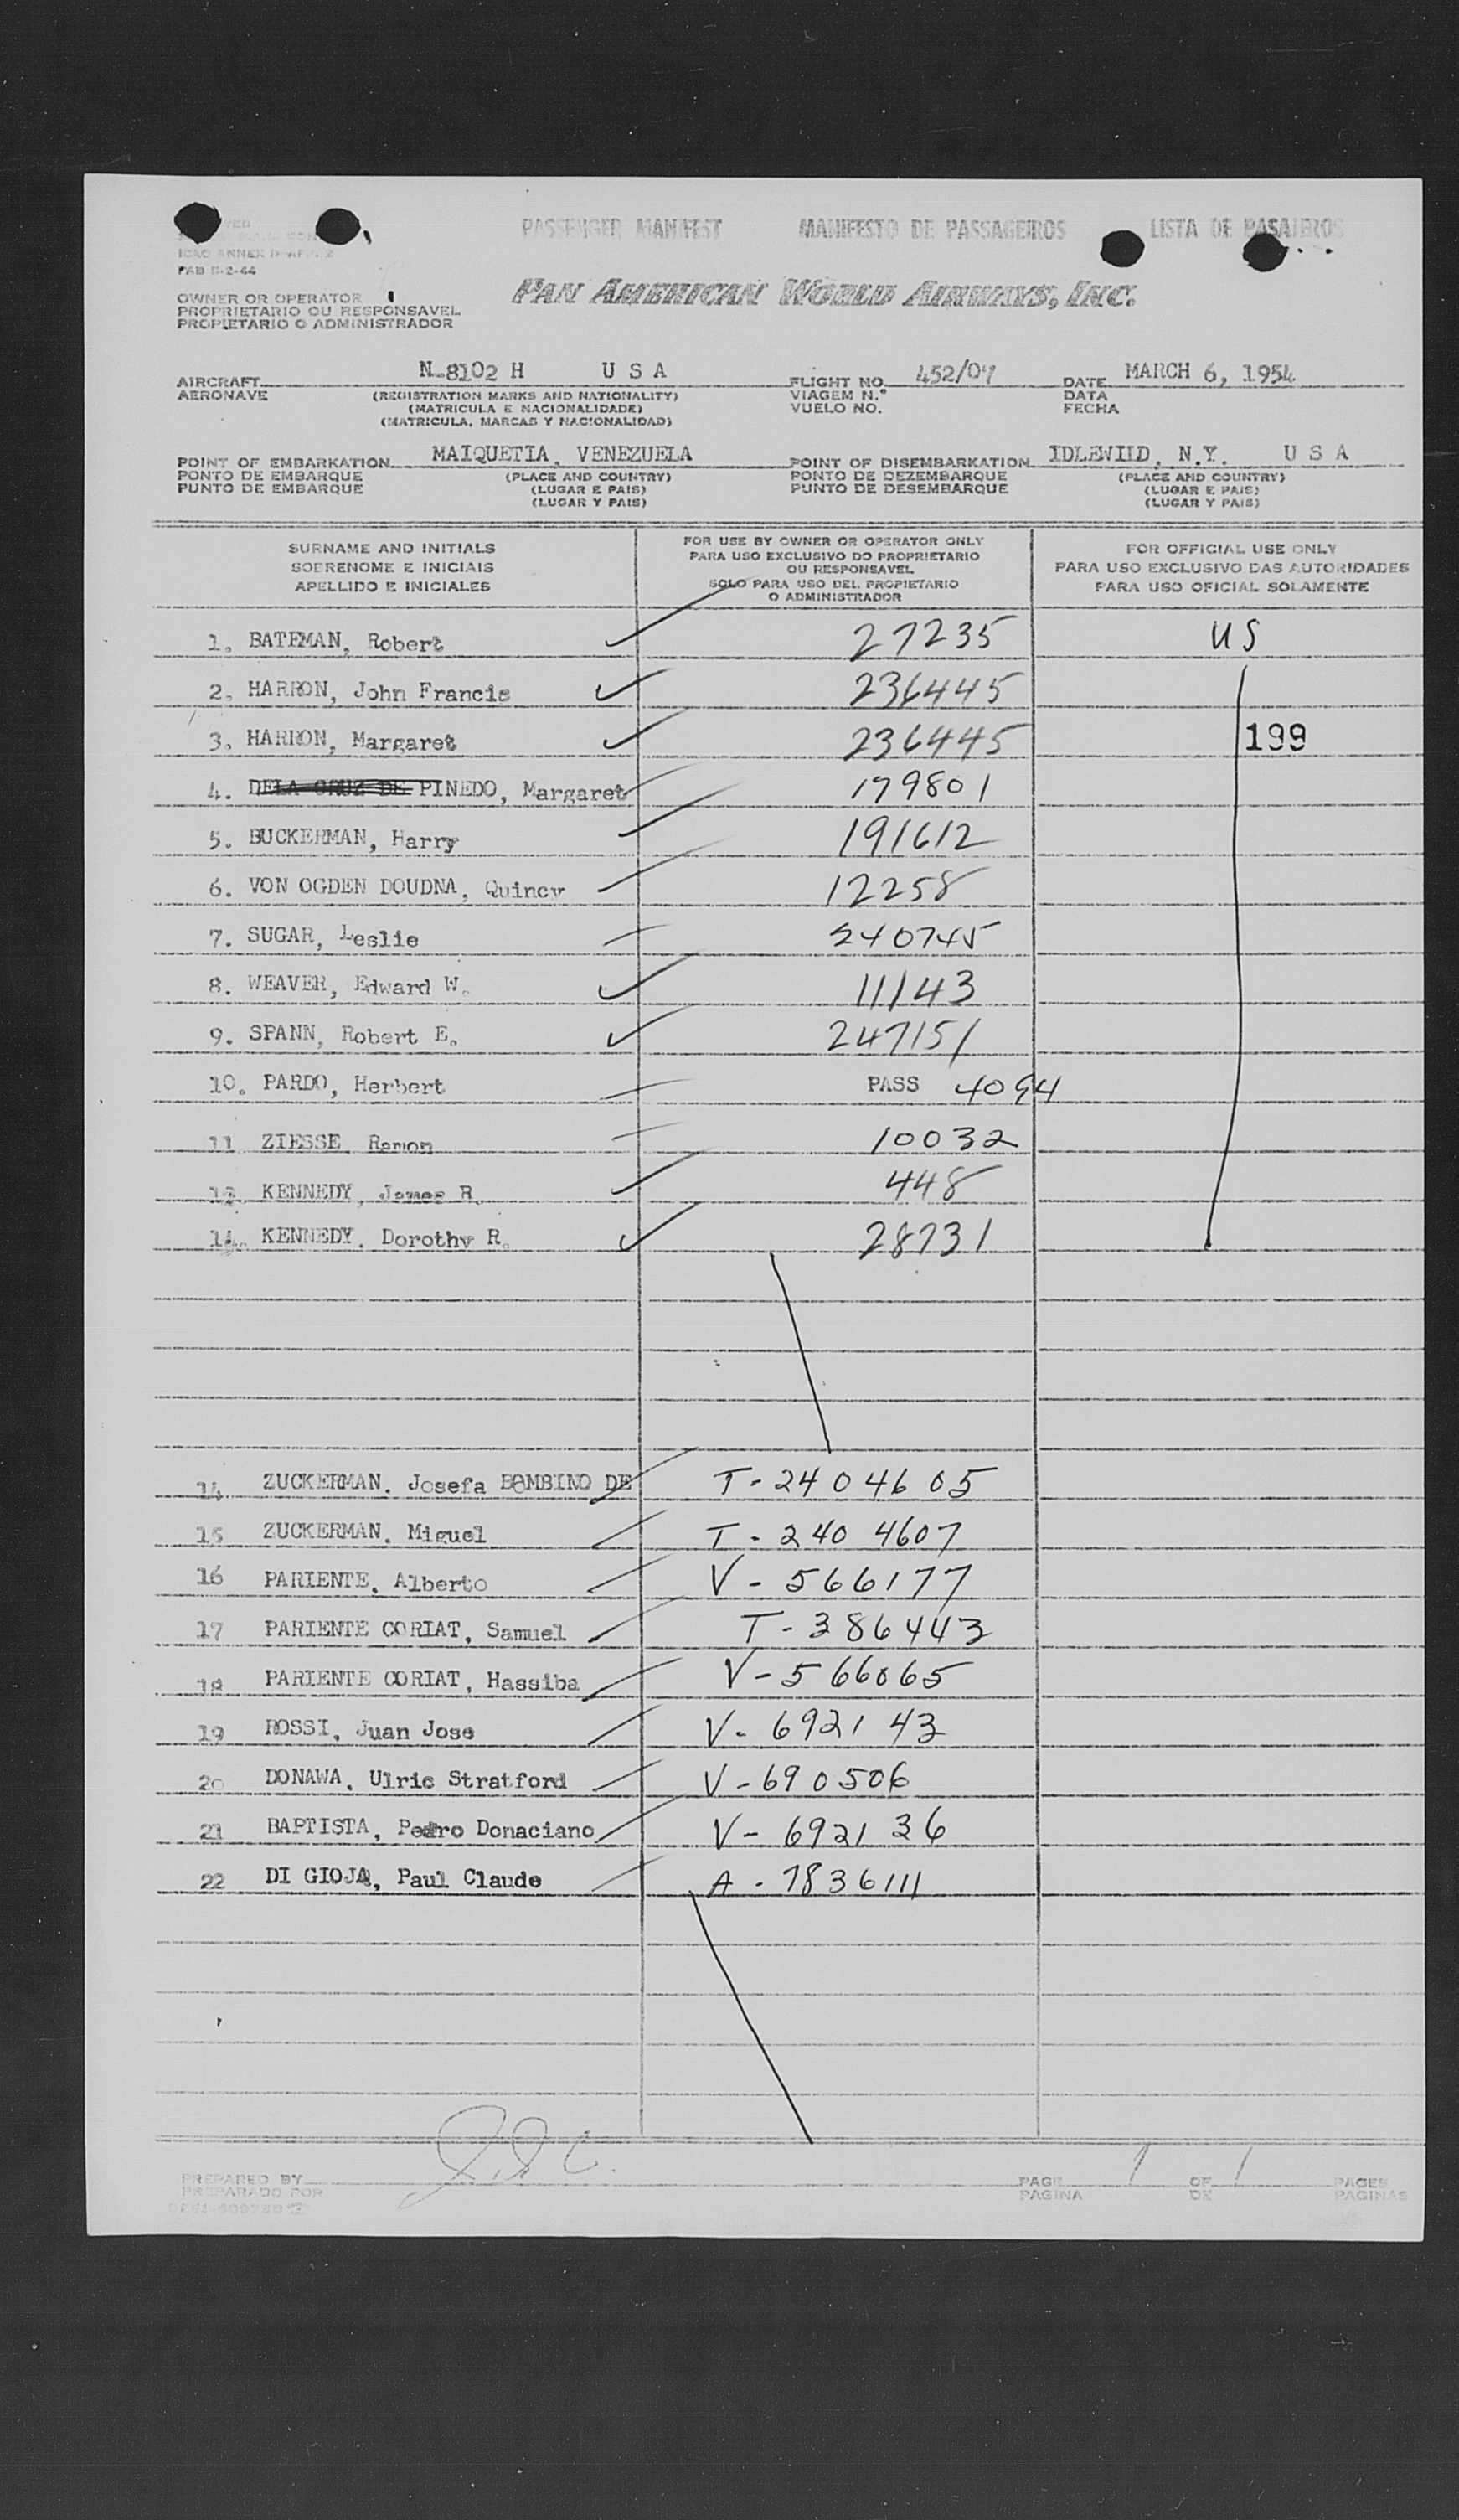 PASSENGER MANIFEST MANIFESTO DE PASSAGEIROS LISTA DE PASAJEROS
ICAO ANNEX 9-APP. 2
PAN AMERICAN WORLD AIRWAYS, INC.
OWNER OR OPERATOR
PROPRIETARIO OU RESPONSAVEL
PROPIETARIO O ADMINISTRADOR
AIRCRAFT N-8102 H U S A FLIGHT NO. 452/07 DATE MARCH 6, 1954
AERONAVE (REGISTRATION MARKS AND NATIONALITY) VIAGEM N.º DATA
(MATRICULA E NACIONALIDADE) VUELO NO. FECHA
(MATRICULA, MARCAS Y NACIONALIDAD)
POINT OF EMBARKATION MAIQUETIA, VENEZUELA POINT OF DISEMBARKATION IDLEWILD, N.Y. U S A
PONTO DE EMBARQUE (PLACE AND COUNTRY) PONTO DE DEZEMBARQUE (PLACE AND COUNTRY)
PUNTO DE EMBARQUE (LUGAR E PAIS) PUNTO DE DESEMBARQUE (LUGAR E PAIS)
(LUGAR Y PAIS) (LUGAR Y PAIS)
SURNAME AND INITIALS
SOBRENOME E INICIAIS
APELLIDO E INICIALES
FOR USE BY OWNER OR OPERATOR ONLY
PARA USO EXCLUSIVO DO PROPRIETARIO
OU RESPONSAVEL
SOLO PARA USO DEL PROPIETARIO
O ADMINISTRADOR
FOR OFFICIAL USE ONLY
PARA USO EXCLUSIVO DAS AUTORIDADES
PARA USO OFICIAL SOLAMENTE
1. BATEMAN, Robert 27235 US
2. HARRON, John Francis 236445
3. HARRON, Margaret 236445 199
4. DELA CRUZ DE PINEDO, Margaret 179801
5. BUCKERMAN, Harry 191612
6. VON OGDEN DOUDNA, Quincy 12258
7. SUGAR, Leslie 240745
8. WEAVER, Edward W. 11143
9. SPANN, Robert E. 247151
10. PARDO, Herbert PASS 4094
11. ZIESSE, Ramon 10032
KENNEDY, James R. 448
KENNEDY, Dorothy R. 28731
14 ZUCKERMAN, Josefa BOMBINO DE T-2404605
15 ZUCKERMAN, Miguel T-2404607
16 PARIENTE, Alberto V-566177
17 PARIENTE CORIAT, Samuel T-386443
18 PARIENTE CORIAT, Hassiba V-566065
19 ROSSI, Juan Jose V-692143
20 DONAWA, Ulric Stratford V-690506
21 BAPTISTA, Pedro Donaciano V-692136
22 DI GIOJA, Paul Claude A-7836111
PREPARED BY PAGE 1 OF 1 PAGES
PREPARADO POR PAGINA DE PAGINAS